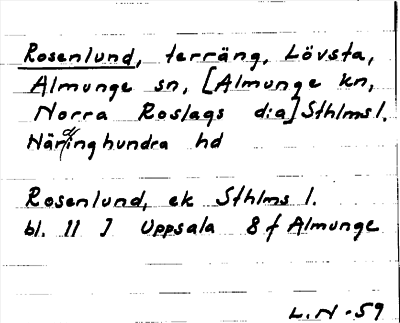 Rosenlund, terräng, Lövsta,
Almunge sn, [Almunge kn,
Norra Roslags d:a] Sthlms l.
Närdinghundra hd
Rosenlund, ek Sthlms l.
bl. 11 J Uppsala 8 f Almunge
L.N -59